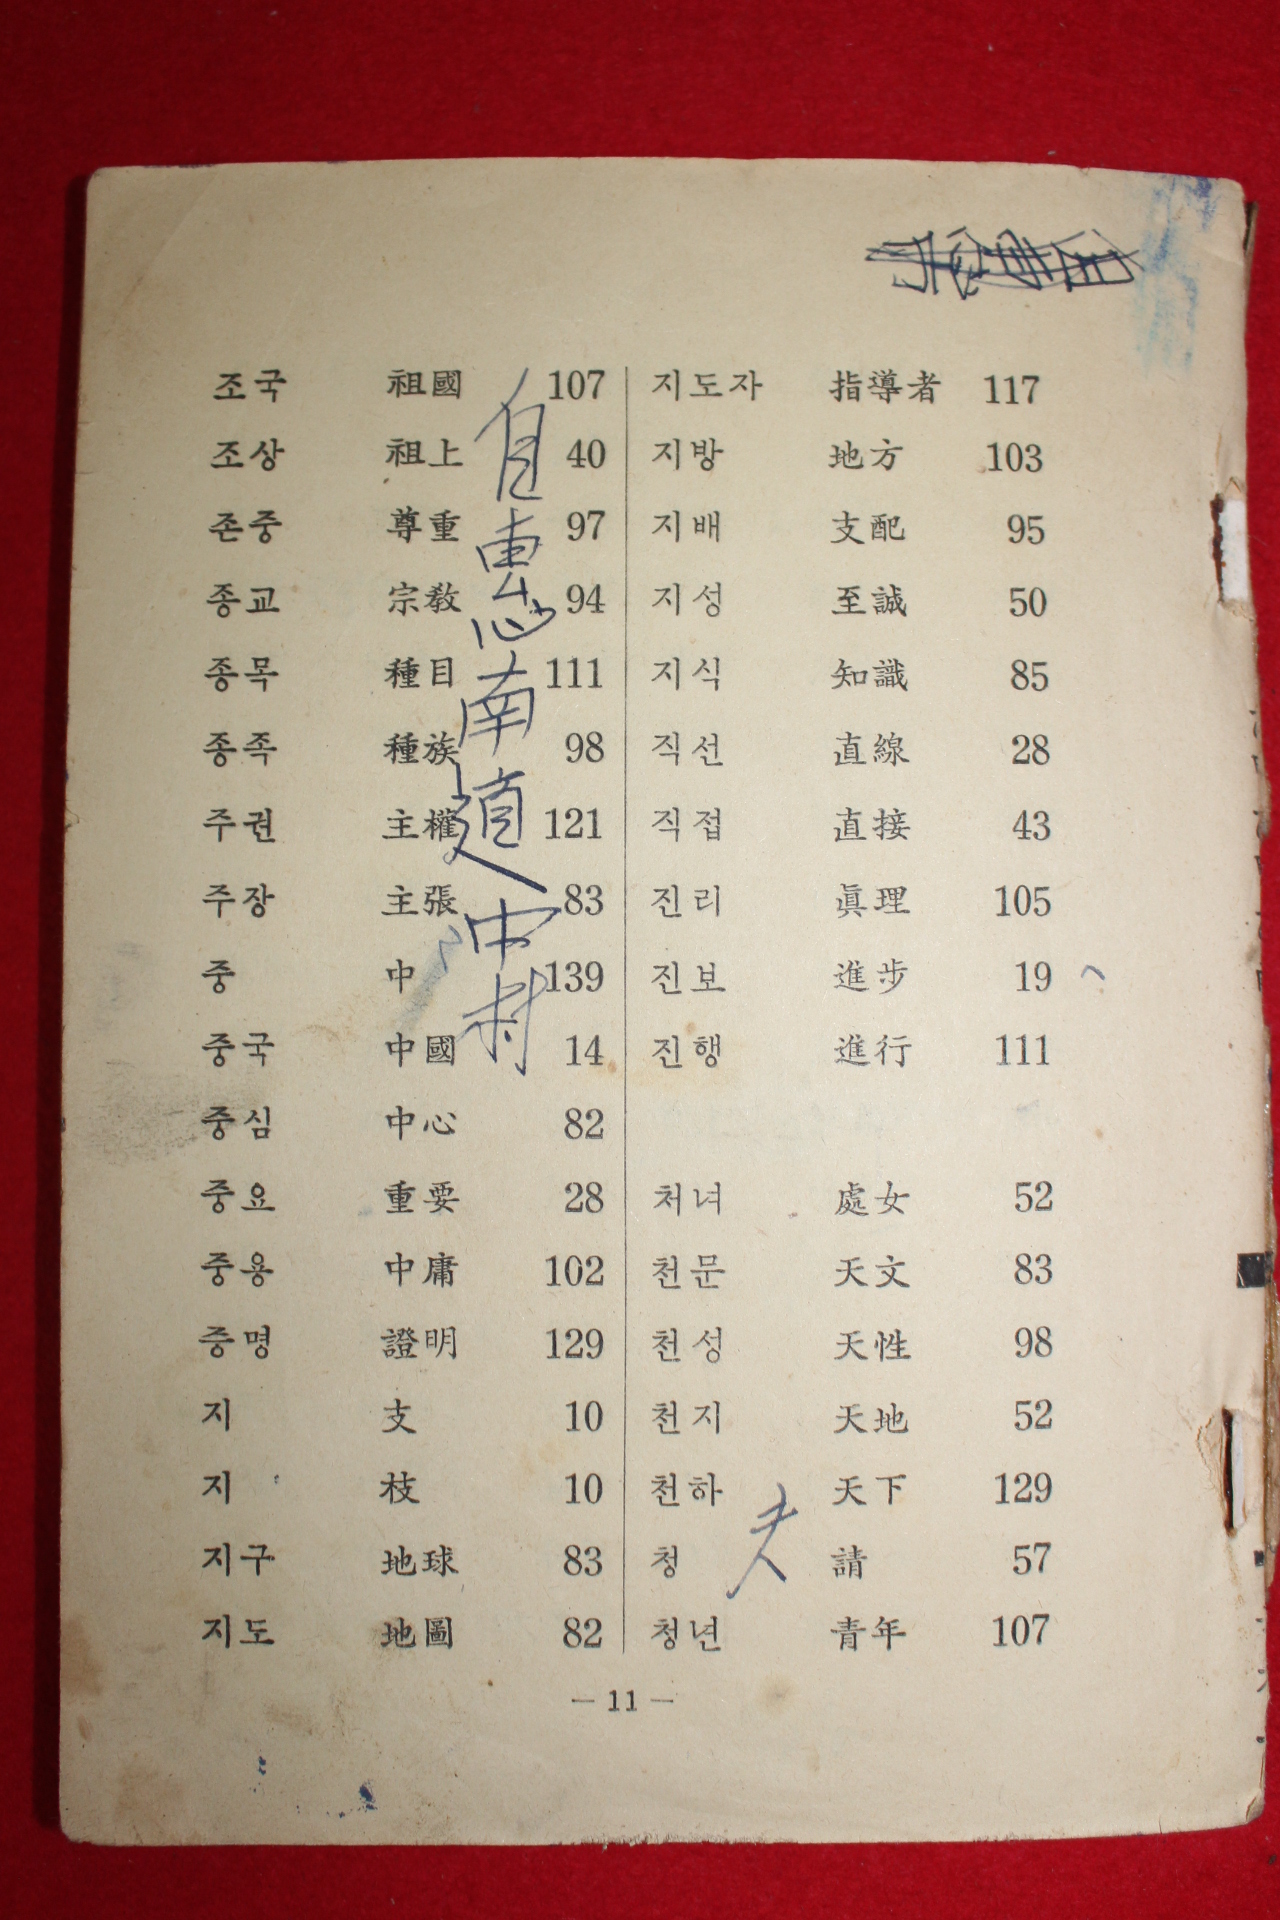 조국 祖國 107
조상 祖上 40
존중 尊重 97
종교 宗敎 94
종목 種目 111
종족 種族 98
주권 主權 121
주장 主張 83
중 中 139
중국 中國 14
중심 中心 82
중요 重要 28
중용 中庸 102
증명 證明 129
지 支 10
지 枝 10
지구 地球 83
지도 地圖 82
지도자 指導者 117
지방 地方 103
지배 支配 95
지성 至誠 50
지식 知識 85
직선 直線 28
직접 直接 43
진리 眞理 105
진보 進步 19
진행 進行 111
처녀 處女 52
천문 天文 83
천성 天性 98
천지 天地 52
천하 天下 129
청 請 57
청년 靑年 107
自惠南道中村
夫
— 11 —